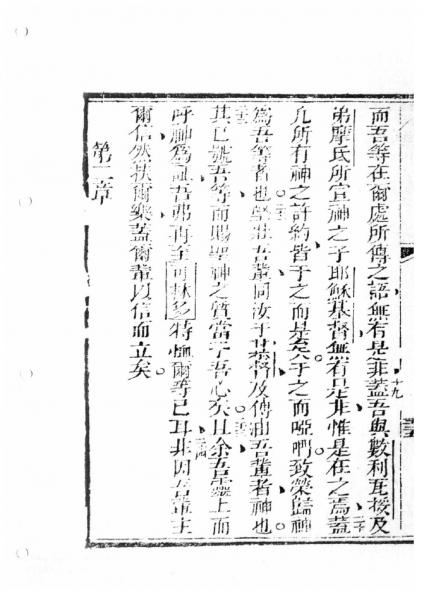 而吾等在爾處所傳之語無若是非蓋吾與數利瓦挨及
十九
弟摩氏所宣神之子耶穌基督無若是非惟是在之焉蓋
二十
凡所有神之許約皆于之而是矣亦于之而啞們致榮歸神
為吾等者也
二一
堅壯吾輩同汝于基督及傅油吾輩者神也
二二
其已號吾等而賜聖神之質當于吾心矣
二三
且余吾靈上而
呼神為証吾弗再至可林多特憮爾等已耳非因吾輩主
二四
爾信然扶爾樂蓋爾輩以信而立矣
第二章